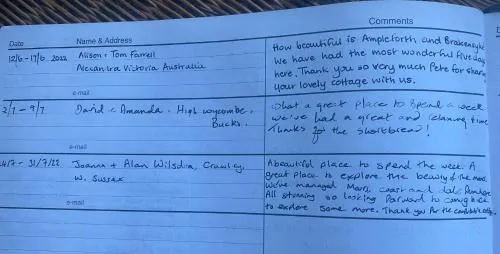 Comments
Date
Name & Address
12/6 - 17/6 2022 Alison + Tom Farrell
Alexandra Victoria Australia
e-mail
How beautiful is Ampleforth and
We have had the most wonderful five days
here. Thank you so very much Pete for sharing
your lovely cottage with us.
2/7 - 9/7 David & Amanda. High Wycombe,
Bucks.
e-mail
What a great place to spend a week
we've had a great and relaxing time
Thanks for the shortbread!
/7 - 31/7/22 Joanna + Alan Crawley,
W. Sussex
e-mail
A beautiful place to spend the week. A
great place to explore the beauty of the
We've managed coast and
All stunning so looking forward to coming back
to explore some more. Thank you for the